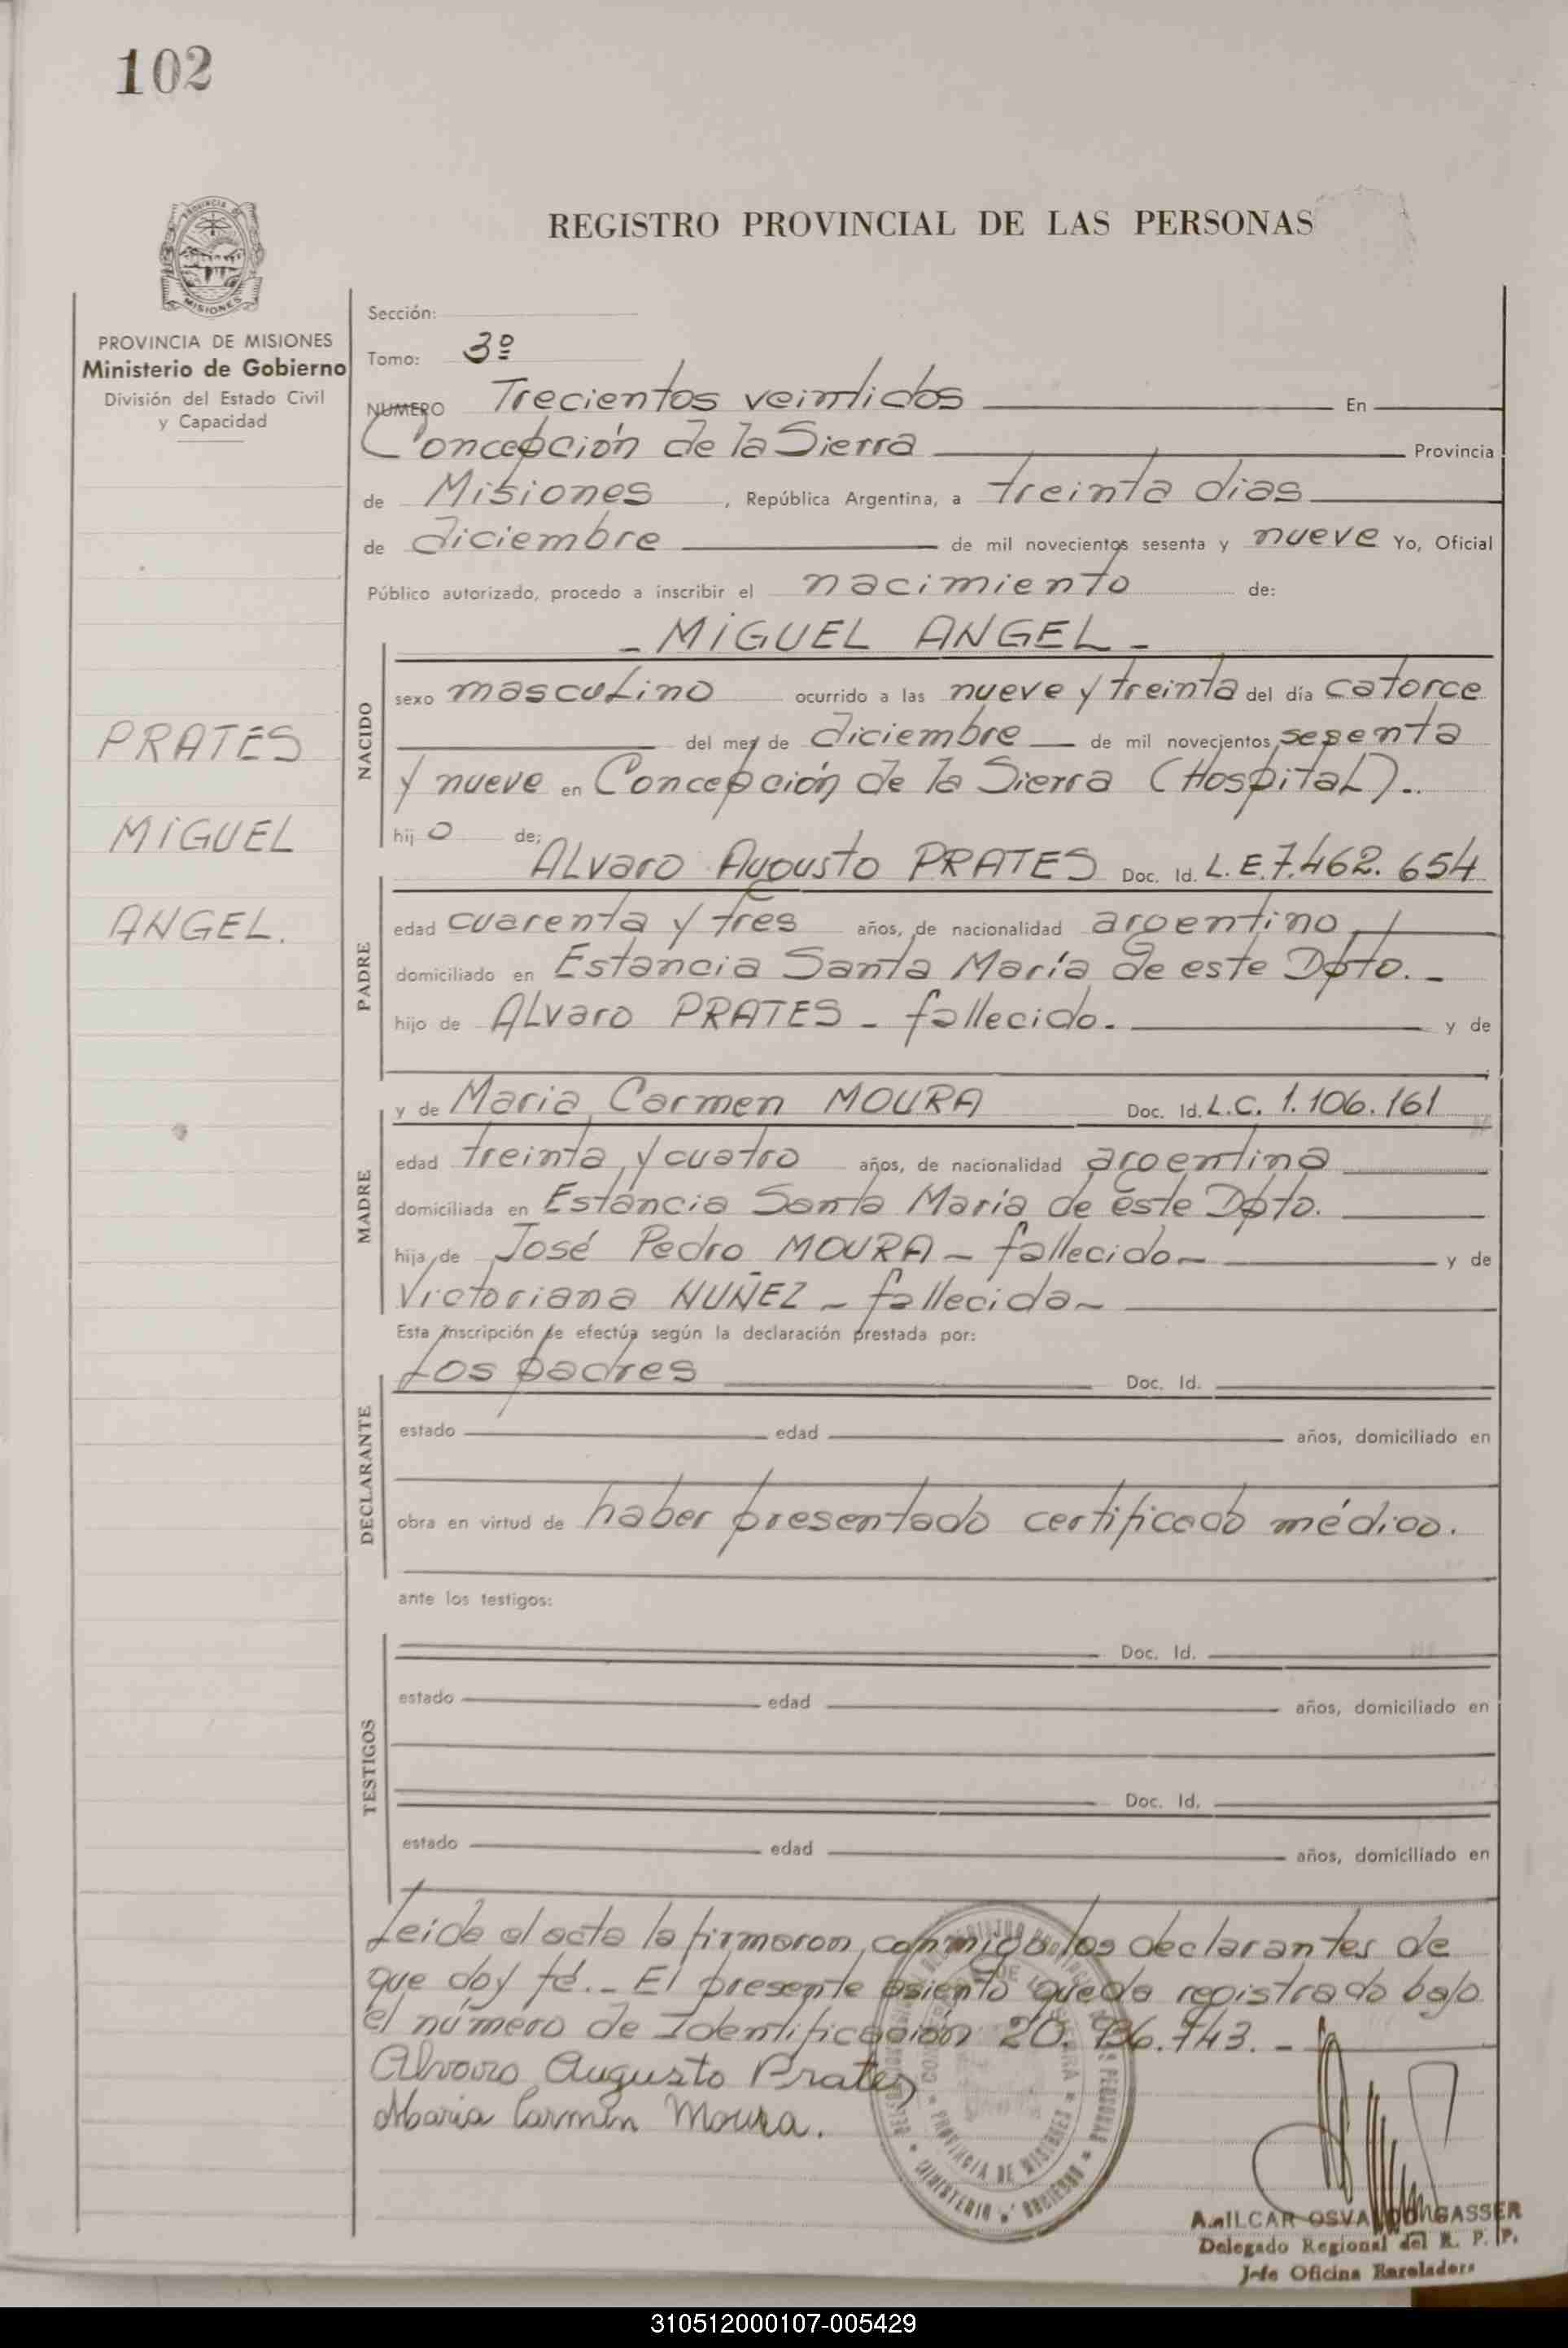 102
REGISTRO PROVINCIAL DE LAS PERSONAS
PROVINCIA DE
MISIONES
PROVINCIA DE MISIONES
Ministerio de Gobierno
División del Estado Civil
y Capacidad
PRATES
MIGUEL
ANGEL.
Sección:
Tomo: 3º
NUMERO Trecientos veintidos En
Concepción de la Sierra Provincia
de Misiones, República Argentina, a treinta dias
de diciembre de mil novecientos sesenta y nueve Yo, Oficial
Público autorizado, procedo a inscribir el nacimiento de:
- MIGUEL ANGEL -
NACIDO
sexo masculino ocurrido a las nueve y treinta del día catorce
del mes de diciembre de mil novecientos sesenta
y nueve en Concepción de la Sierra (Hospital).
hijo de:
PADRE
Alvaro Augusto PRATES Doc. Id. L.E.7.462.654
edad cuarenta y tres años, de nacionalidad argentino
domiciliado en Estancia Santa María de este Dpto. -
hijo de Alvaro PRATES - fallecido. y de
MADRE
y de Maria Carmen MOURA Doc. Id. L.C. 1.106.161
edad treinta y cuatro años, de nacionalidad argentina
domiciliada en Estancia Santa María de este Dpto.
hija de José Pedro MOURA - fallecido - y de
Victoriana NUÑEZ - fallecida -
Esta inscripción se efectúa según la declaración prestada por:
DECLARANTE
Los padres Doc. Id.
estado edad años, domiciliado en
obra en virtud de haber presentado certificado médico.
ante los testigos:
TESTIGOS
Doc. Id.
estado edad años, domiciliado en
Doc. Id.
estado edad años, domiciliado en
Leida el acta la firmaron conmigo los declarantes de
que doy fé. - El presente asiento queda registrado bajo
el número de Identificación 20.
Alvaro Augusto Prates
Maria Carmen Moura.
PROVINCIA DE MISIONES
MINISTERIO
AMILCAR
Delegado Regional del R. P. P.
Jefe Oficina Enroladora
310512000107-005429